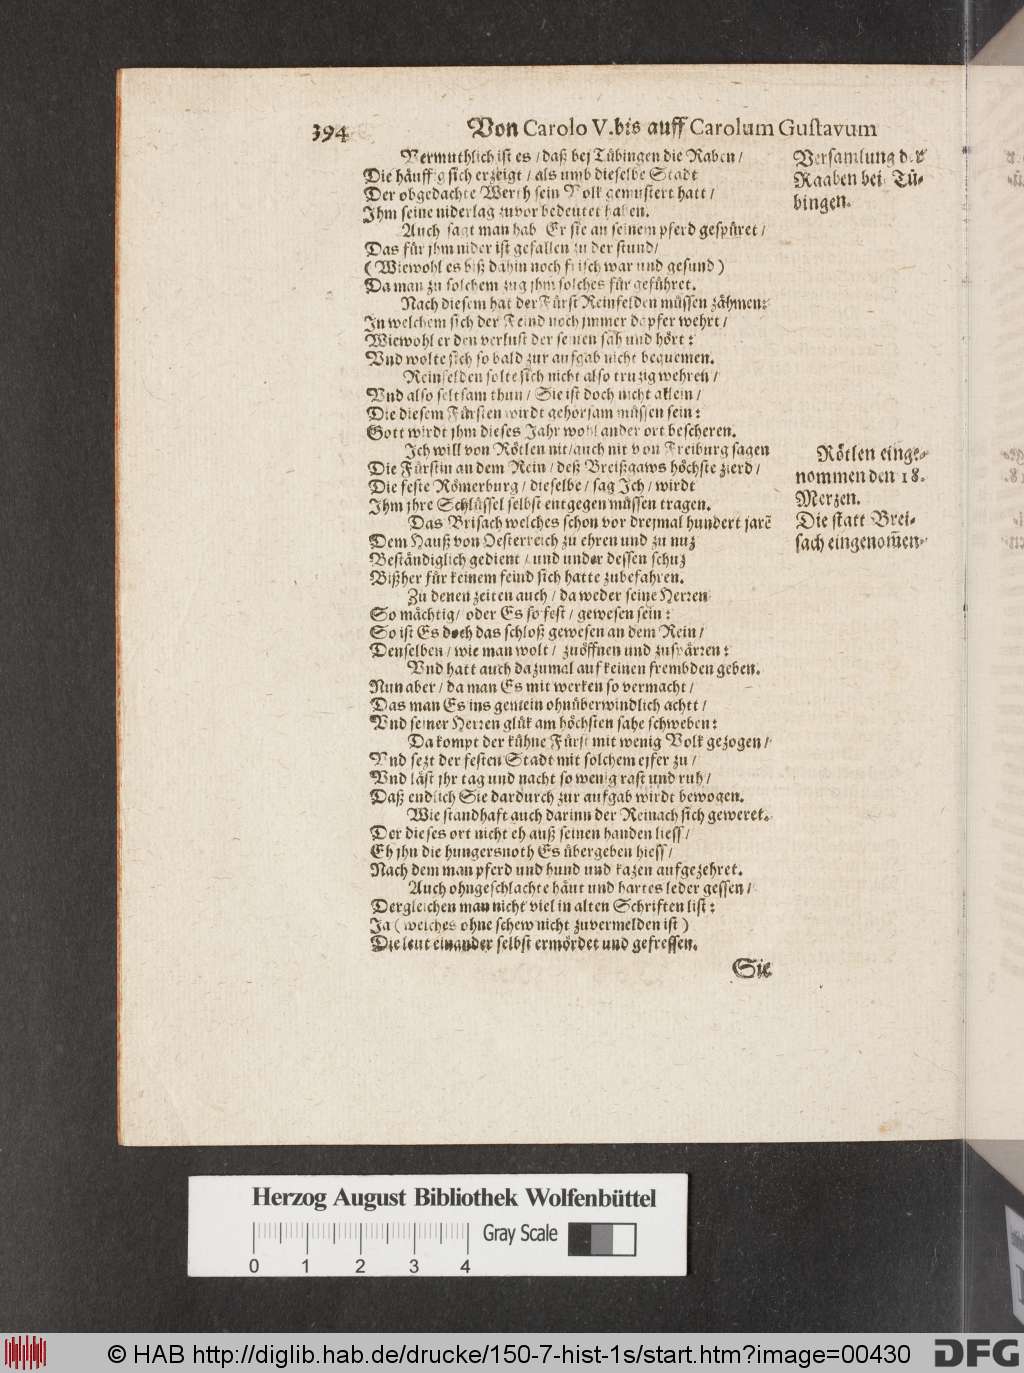 394
Von Carolo V. bis auff Carolum Gustavum
Vermuthlich ist es / daß bej Tübingen die Raben /
Die häuffig sich erzeigt / als umb dieselbe Stadt
Der obgedachte Werth sein Volk gemustert hatt /
Ihm seine niderlag zuvor bedeutet haben.
Auch sagt man hab Er sie an seinem pferd gespüret /
Das für jhm nider ist gefallen zu der stund /
( Wiewohl es biß dahin noch frisch war und gesund )
Da man zu solchem zug jhm solches für geführet.
Nach diesem hat der Fürst Reinfelden müssen zähmen:
In welchem sich der Feind noch jmmer dapfer wehrt /
Wiewohl er den verlust der seinen sah und hört:
Vnd wolte sich so bald zur aufgab nicht bequemen.
Reinfelden solte sich nicht also truzig wehren /
Vnd also seltsam thun / Sie ist doch nicht allein /
Die diesem Fürsten wirdt gehorsam müssen sein:
Gott wirdt jhm dieses Jahr wohl ander ort bescheren.
Ich will von Rötlen nit / auch nit von Freiburg sagen
Die Fürstin an dem Rein / deß Breißgaws höchste zierd /
Die feste Römerburg / dieselbe / sag Ich / wirdt
Ihm jhre Schlüssel selbst entgegen müssen tragen.
Das Brisach welches schon vor drejmal hundert jarẽ
Dem Hauß von Oesterreich zu ehren und zu nuz
Beständiglich gedient / und under dessen schuz
Bißher für keinem feind sich hatte zubefahren.
Zu denen zeiten auch / da weder seine Herren
So mächtig / oder Es so fest / gewesen sein:
So ist Es doch das schloß gewesen an dem Rein /
Denselben / wie man wolt / zuöffnen und zuspärren:
Vnd hatt auch dazumal auf keinen frembden geben.
Nun aber / da man Es mit werken so vermacht /
Das man Es ins gemein ohnüberwindlich achtt /
Vnd seiner Herren glük am höchsten sahe schweben:
Da kompt der kühne Fürst mit wenig Volk gezogen /
Vnd sezt der festen Stadt mit solchem ejfer zu /
Vnd läst jhr tag und nacht so wenig rast und ruh /
Daß endlich Sie dardurch zur aufgab wirdt bewogen.
Wie standhaft auch darinn der Reinach sich geweret.
Der dieses ort nicht eh auß seinen handen liess /
Eh jhn die hungersnoth Es übergeben hiess /
Nach dem man pferd und hund und kazen aufgezehret.
Auch ohngeschlachte häut und hartes leder gessen /
Dergleichen man nicht viel in alten Schriften list:
Ja ( welches ohne schew nicht zuvermelden ist )
Die leut einander selbst ermördet und gefressen.
Sie
Versamlung der
Raaben bei Tü-
bingen.
Rötlen einge-
nommen den 18.
Merzen.
Die statt Brei-
sach eingenom̃en
Herzog August Bibliothek Wolfenbüttel
Gray Scale
0 1 2 3 4
© HAB http://diglib.hab.de/drucke/150-7-hist-1s/start.htm?image=00430
DFG